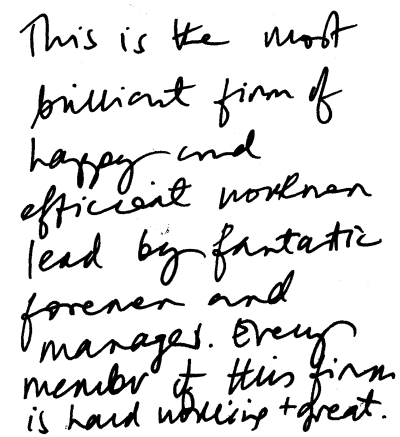 This is the most
brilliant firm of
happy and
efficient workmen
lead by fantastic
foremen and
manager. Every
member of this firm
is hard working + great.